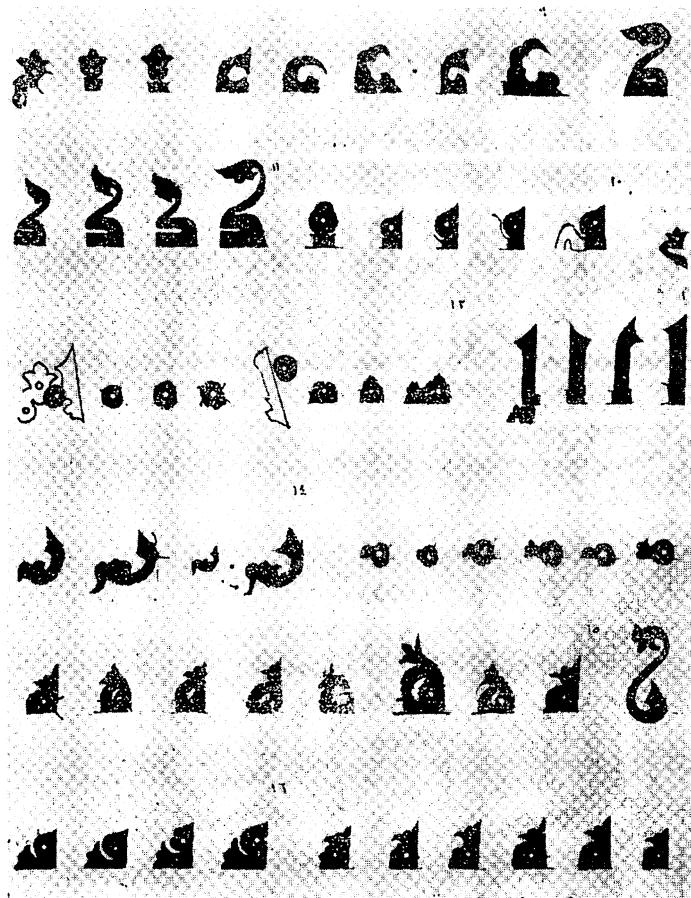 ٩
١٠ ١١
١٢
١٤
١٥
١٦